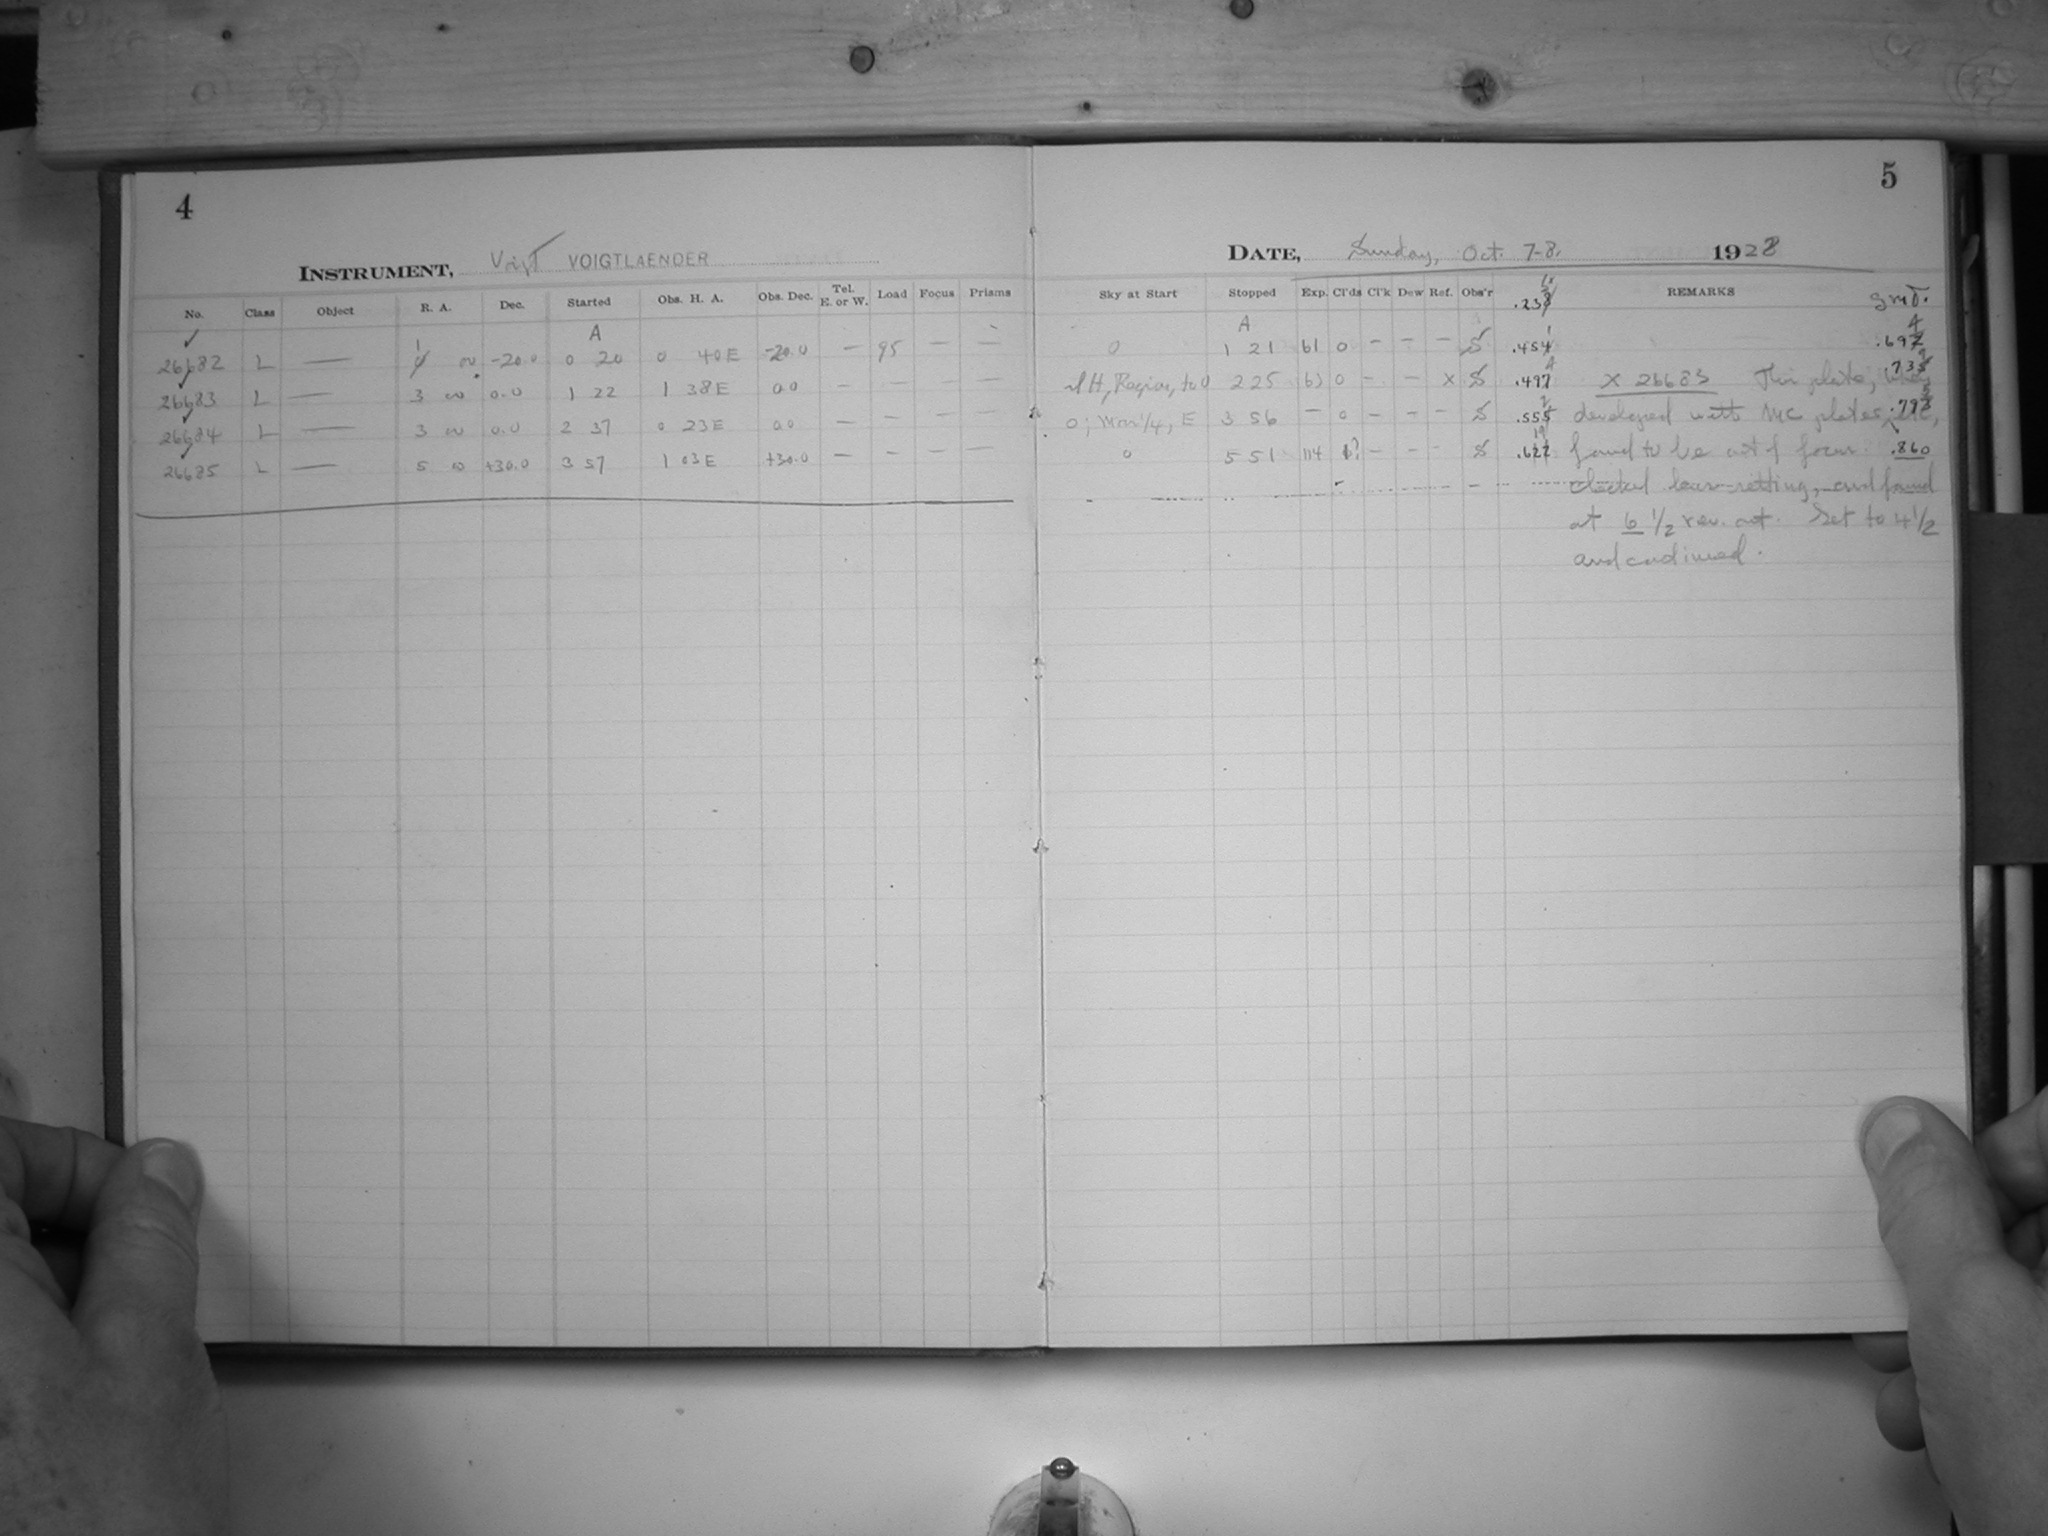 4
INSTRUMENT, Voigt VOIGTLAENDER
No. Class Object R. A. Dec. Started Obs. H. A. Obs. Dec. Tel. E. or W. Load Focus Prisms
A
26682 L — 1 00 -20.0 0 20 0 40 E -20.0 — 95 — —
26683 L — 3 00 0.0 1 22 1 38 E 0.0 — — — —
26684 L — 3 00 0.0 2 37 0 23 E 0.0 — — — —
26685 L — 5 00 +30.0 3 57 1 03 E +30.0 — — — —
5
DATE, Sunday, Oct. 7-8. 1928
Sky at Start Stopped Exp. Cl'ds Cl'k Dew Ref. Obs'r .23 REMARKS
A
0 1 21 61 0 - - - S .454 .69
H, Region, to 0 2 25 63 0 - - x S .497 X 26683 This plate, .73
0; Moon 1/4, E 3 56 - 0 - - - S .555 developed with MC plates, .79
0 5 51 114 - - - S .62 found to be out of focus. .860
checked lens-setting, and found
at 6 1/2 rev. out. Set to 4 1/2
and continued.